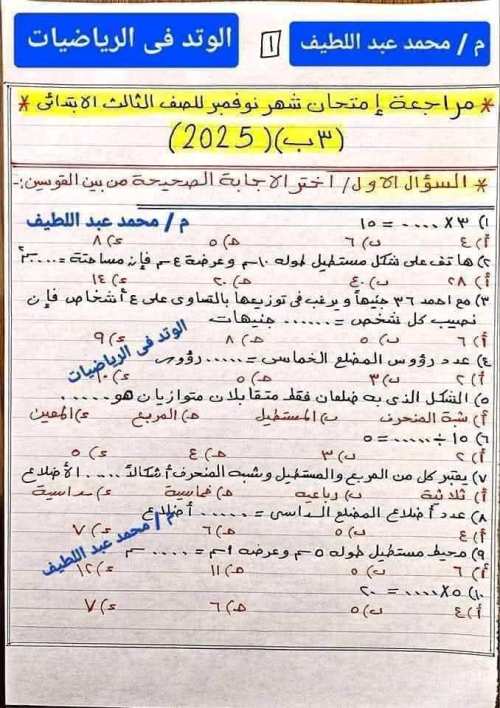 م / محمد عبد اللطيف ١ الوتد فى الرياضيات
* مراجعة إمتحان شهر نوفمبر للصف الثالث الابتدائى *
(٣ب)(2025)
* السؤال الاول / اختر الاجابة الصحيحة من بين القوسين:-
١) ٣ × ..... = ١٥ م / محمد عبد اللطيف
أ) ٤ ب) ٦ هـ) ٥ ء) ٨
٢) هاتف على شكل مستطيل طوله ١٠سم وعرضة ٤سم فإن مساحتة = ..... سم٢
أ) ٢٨ ب) ٤٠ هـ) ٢٠ ء) ١٤
٣) مع احمد ٣٦ جنيهاً ويرغب فى توزيعها بالتساوى على ٤ أشخاص فإن
نصيب كل شخص = ...... جنيهات
أ) ٦ ب) ٥ هـ) ٨ ء) ٩
الوتد فى الرياضيات
٤) عدد رؤوس المضلع الخماسى = ...... رؤوس
أ) ٢ ب) ٣ هـ) ٥ ء) ١٠
٥) الشكل الذى به ضلعان فقط متقابلان متوازيان هو ......
أ) شبة المنحرف ب) المستطيل هـ) المربع ء) المعين
٦) ١٥ ÷ ...... = ٥
أ) ٢ ب) ٣ هـ) ٤ ء) ٥
٧) يعتبر كل من المربع والمستطيل وشبه المنحرف أشكالاً ..... الأضلاع
أ) ثلاثية ب) رباعيه هـ) خماسية ء) سداسية
٨) عدد أضلاع المضلع السداسى = ...... أضلاع
أ) ٤ ب) ٥ هـ) ٦ ء) ٧
م / محمد عبد اللطيف
٩) محيط مستطيل طوله ٥سم وعرضه ١سم = ..... سم
أ) ٦ ب) ٥ هـ) ١١ ء) ١٢
١٠) ٥ × ..... = ٢٠
أ) ٤ ب) ٥ هـ) ٦ ء) ٧